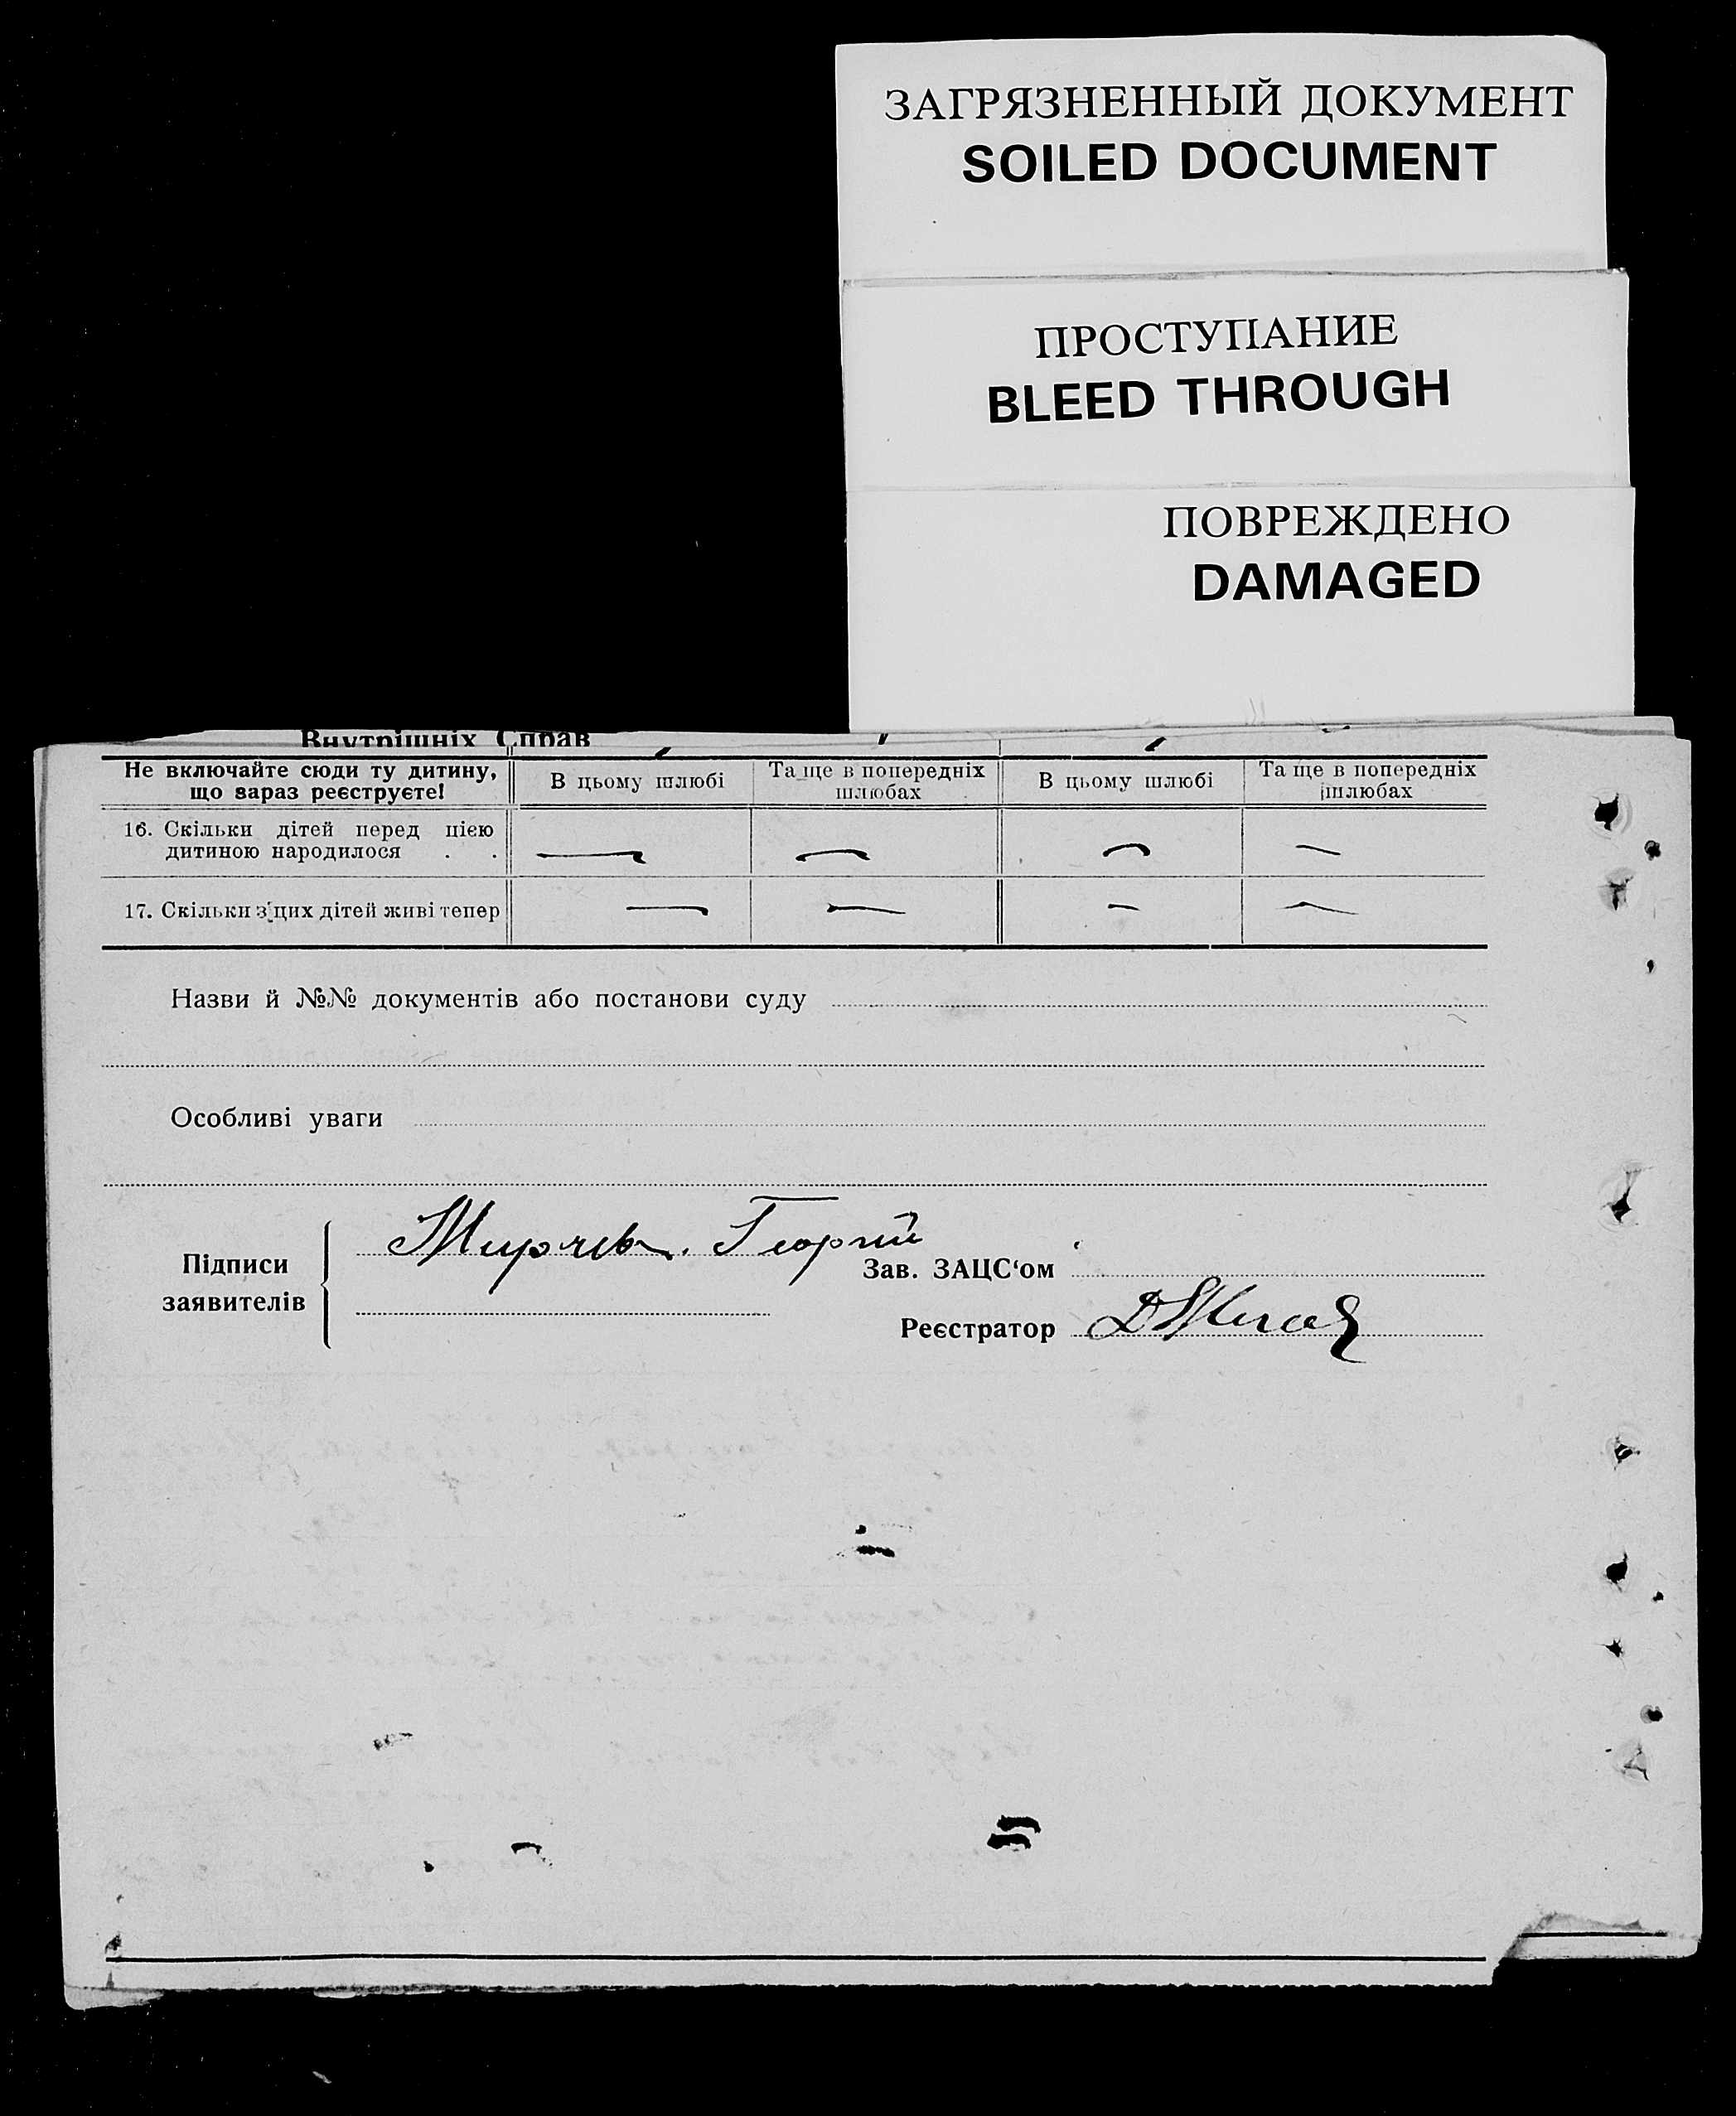 ЗАГРЯЗНЕННЫЙ ДОКУМЕНТ
SOILED DOCUMENT
ПРОСТУПАНИЕ
BLEED THROUGH
ПОВРЕЖДЕНО
DAMAGED
Внутрішніх Справ
Не включайте сюди ту дитину, що зараз реєструєте!
В цьому шлюбі
Та ще в попередніх шлюбах
В цьому шлюбі
Та ще в попередніх шлюбах
16. Скільки дітей перед цією
дитиною народилося . . — — — —
17. Скільки з цих дітей живі тепер — — — —
Назви й №№ документів або постанови суду
Особливі уваги
Підписи
заявителів
Георгий
Зав. ЗАЦС‘ом
Реєстратор